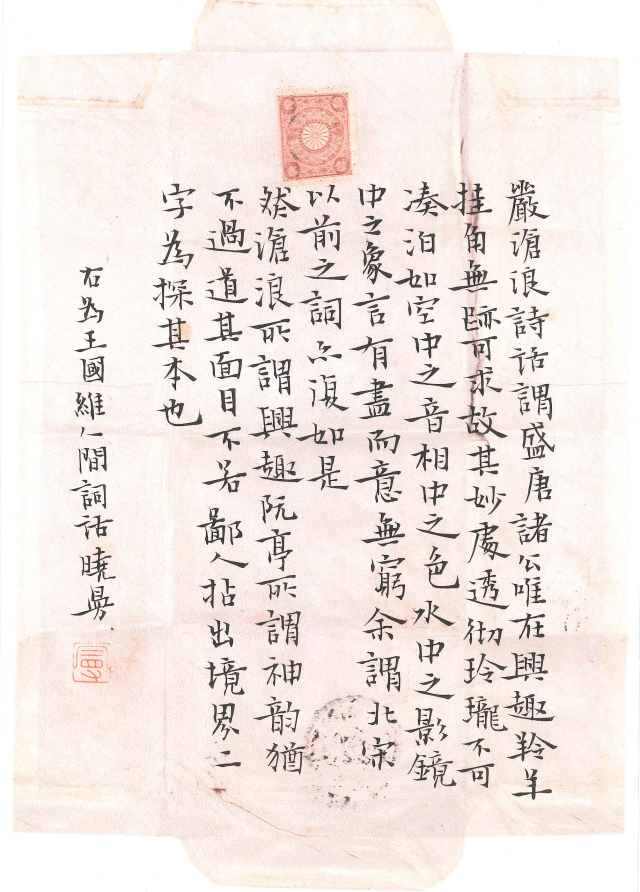 嚴滄浪詩話謂盛唐諸公唯在興趣羚羊
挂角無跡可求故其妙處透彻玲瓏不可
凑泊如空中之音相中之色水中之影鏡
中之象言有盡而意無窮余謂北宋
以前之詞亦復如是
然滄浪所謂興趣阮亭所謂神韵猶
不過道其面目不若鄙人拈出境界二
字為探其本也
右為王國維人間詞话曉